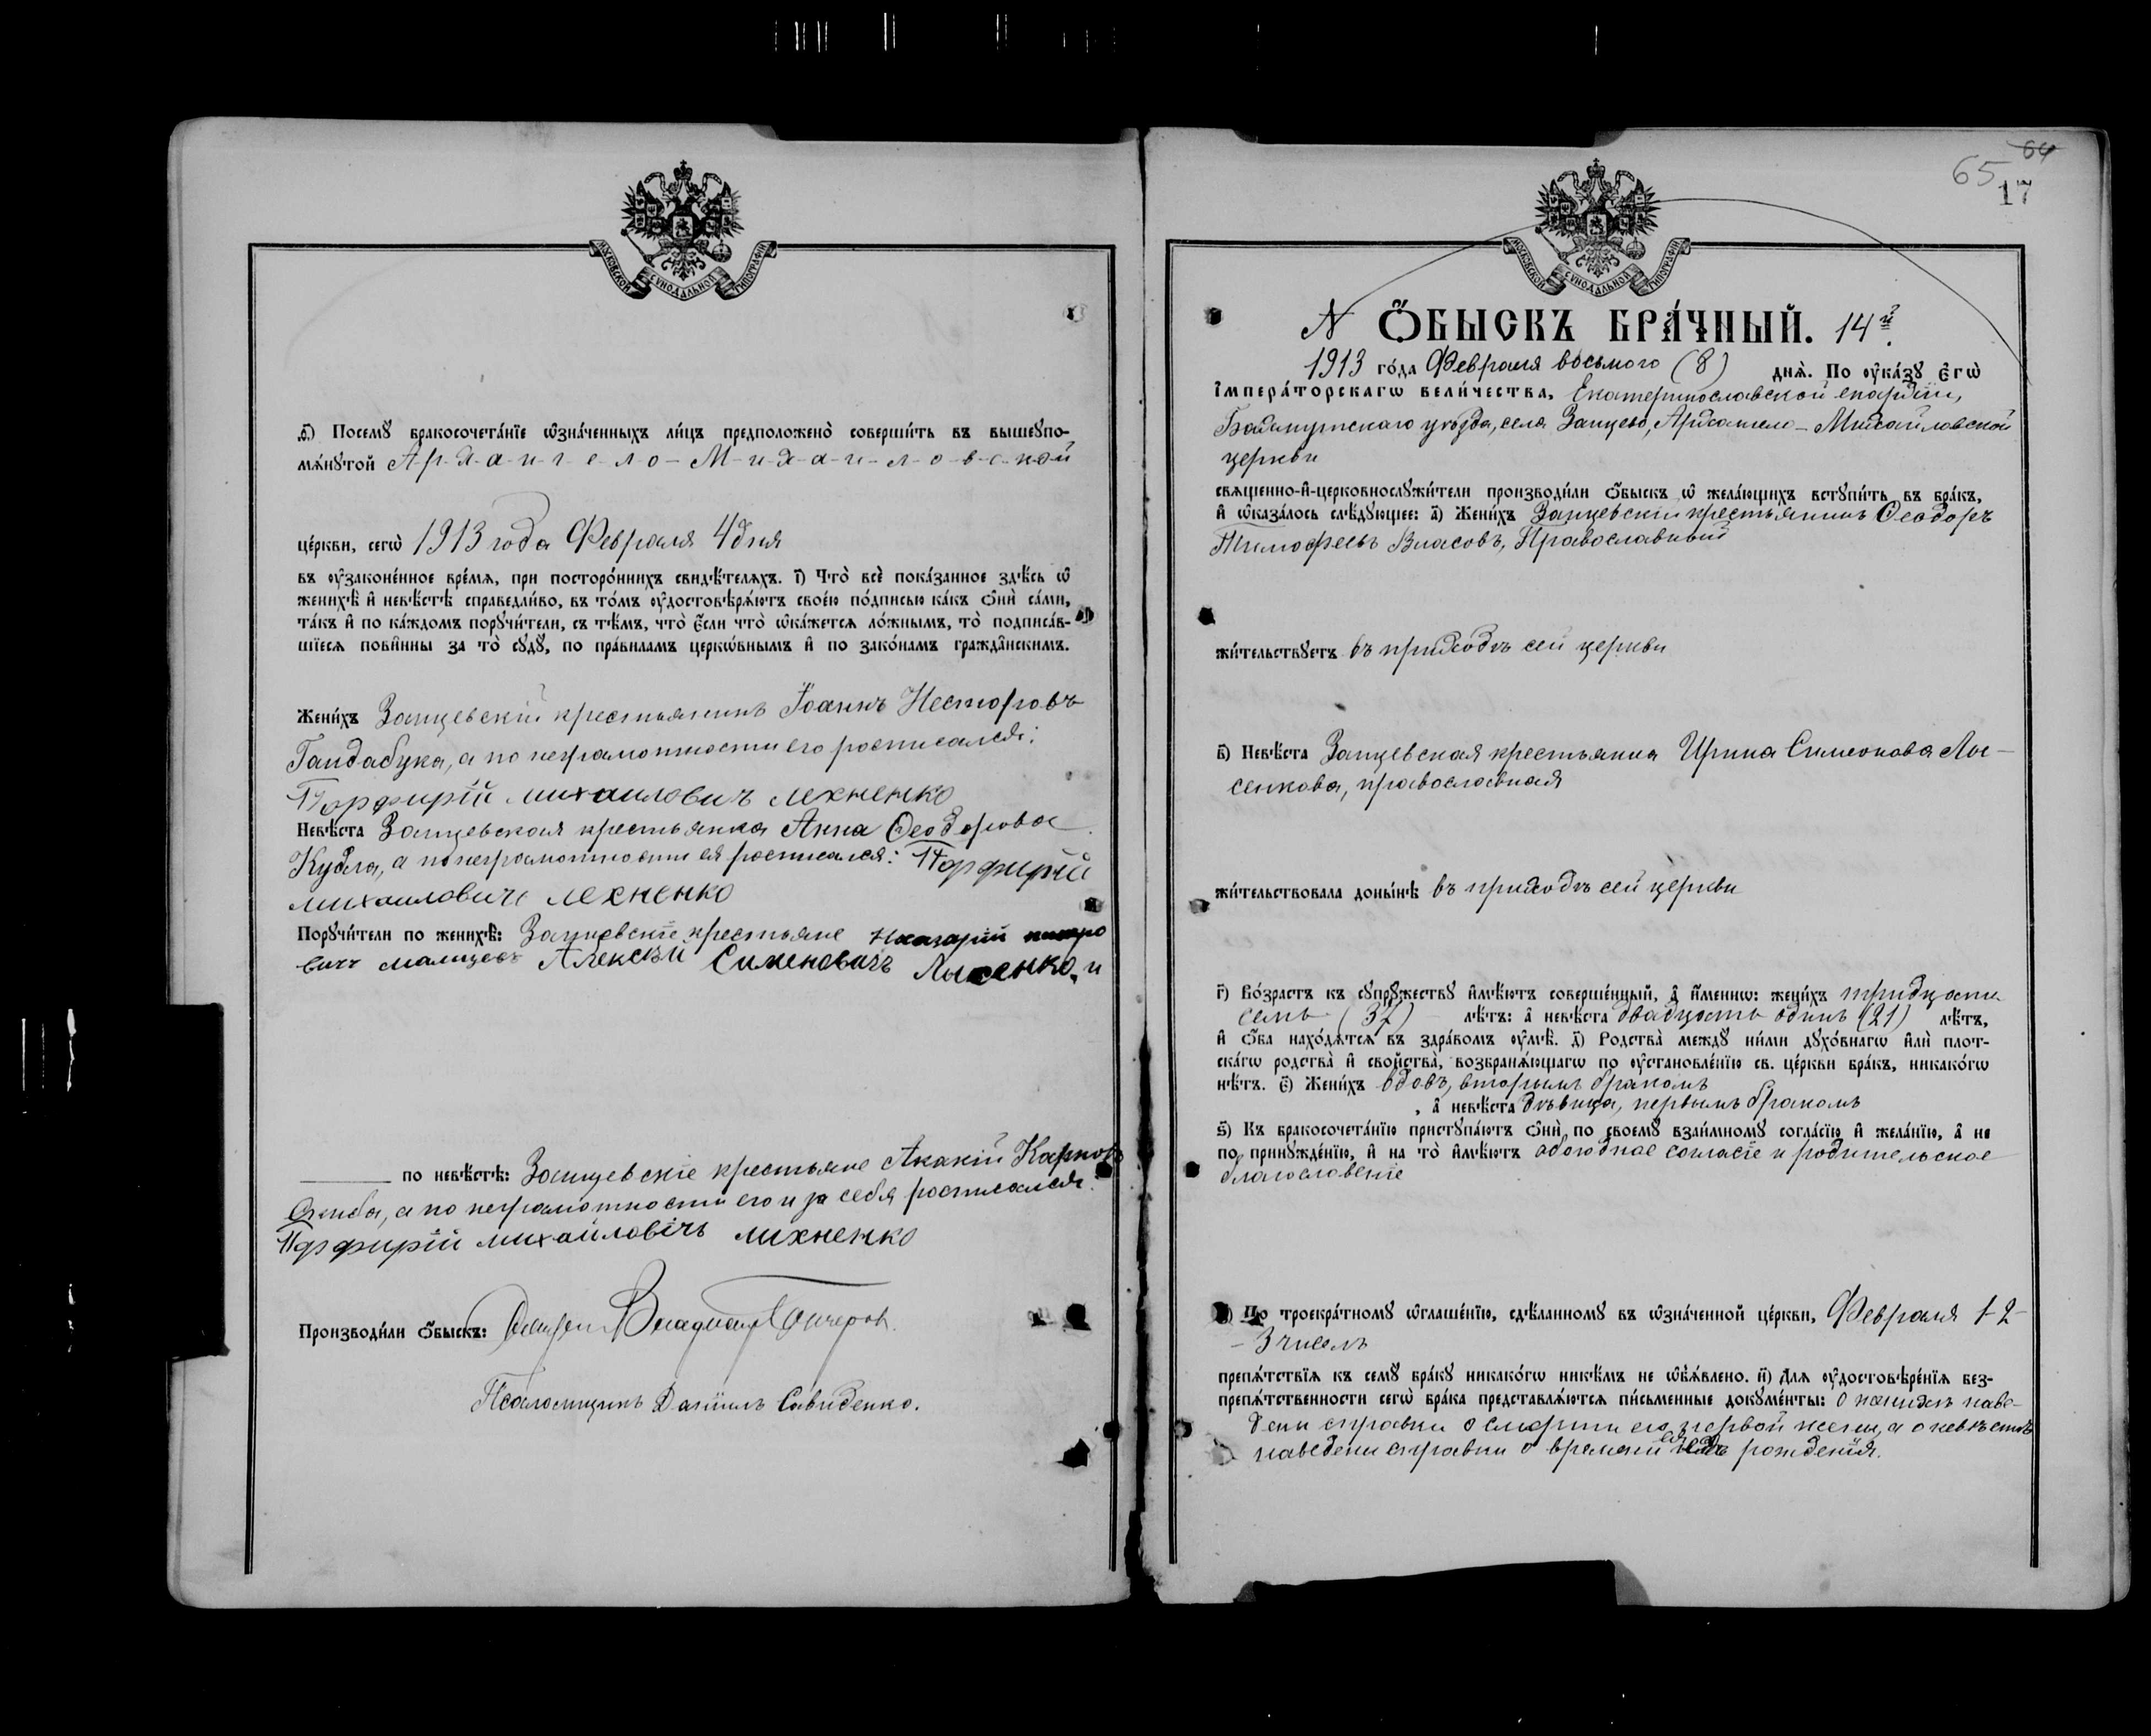 МОСКОВСКОЙ СѴНОДАЛЬНОЙ ТИПОГРАФІИ
ѳ҃) Посемꙋ̀ бракосочета́нїе ѡ҆зна́ченныхъ ли́цъ предположено̀ соверши́ть въ вышеꙋпо-
мѧ́нꙋтой А-р-х-а-н-г-е-л-о-М-и-х-а-и-л-о-в-с-к-о-й
це́ркви, сегѡ̀ 1913 года Февраля 4 дня
въ ᲂу҆законе́нное вре́мѧ, при посторо́ннихъ свидѣ́телѧхъ. і҃) Что̀ всѐ пока́занное здѣ́сь ѡ҆
женихѣ̀ и҆ невѣ́стѣ справедли́во, въ то́мъ ᲂу҆достовѣрѧ́ютъ свое́ю по́дписью ка́къ ѻ҆нѝ са́ми,
та́къ и҆ по ка́ждомъ порꙋчи́тели, съ тѣ́мъ, что̀ є҆́сли что̀ ѡ҆ка́жетсѧ ло́жнымъ, то̀ подписа́в-
шїесѧ пови́нны за то̀ сꙋдꙋ̀, по пра́виламъ церкѡ́внымъ и҆ по зако́намъ гражда̑нскимъ.
Жени́хъ Зайцевскій крестьянинъ Іоаннъ Несторовъ
Гандабука, а по неграмотности его росписался:
Порфирій михаиловичъ лехненко
Невѣ́ста Зайцевская крестьянка Анна Ѳеодорова
Кудла, а по неграмотности ея росписался: Порфирій
михаиловичъ лехненко
Порꙋчи́тели по женихѣ̀: Зайцевскіе крестьяне Назарій
вичъ малицевъ Алексѣй Сименовичъ Лысенко, и
по невѣ́стѣ: Зайцевскіе крестьяне Акакій Карповъ
а по неграмотности его и за себя росписался:
Порфирій михайловічъ лихненко
Производи́ли ѻ҆́быскъ:
Псаломщикъ Даніилъ Савиденко.
64
65
17
МОСКОВСКОЙ СѴНОДАЛЬНОЙ ТИПОГРАФІИ
N ѺБЫСКЪ БРА́ЧНЫЙ. 14й.
1913 го́да Февраля восьмого (8) днѧ̀. По ᲂу҆ка́зꙋ Є҆гѡ̀
І҆мпера́торскагѡ вели́чества, Екатеринославской епархіи,
Бахмутскаго уѣзда, села Зайцево, Архангело-Михайловской
церкви
свѧще́нно-и҆-церковнослꙋжи́тели производи́ли ѻ҆́быскъ ѡ҆ жела́ющихъ встꙋпи́ть въ бра́къ,
и҆ ѡ҆каза́лось слѣ́дꙋющее: а҃) Жени́хъ Зайцевскій крестьянинъ Ѳеодоръ
Тимофеевъ Власовъ, Православный
жи́тельствꙋетъ въ приходѣ сей церкви
в҃) Невѣ́ста Зайцевская крестьянка Ирина Симеонова Лы-
сенкова, православная
жи́тельствовала доны́нѣ въ приходѣ сей церкви
г҃) Во́зрастъ къ сꙋпрꙋ́жествꙋ и҆мѣ́ютъ соверше́нный, а҆ и҆́меннѡ: жени́хъ тридцати
семь (37) лѣ́тъ: а҆ невѣ́ста двадцать одинъ (21) лѣ́тъ,
и҆ ѻ҆́ба нахо́дѧтсѧ въ здра́вомъ ᲂу҆мѣ̀. д҃) Родства̀ междꙋ ни́ми дꙋхо́внагѡ и҆лѝ плот-
ска́гѡ родства̀ и҆ сво́йства̀, возбранѧ́ющагѡ по ᲂу҆становле́нїю св. це́ркви бра́къ, никако́гѡ
нѣ́тъ. є҃) Жени́хъ вдовъ, вторымъ бракомъ
, а҆ невѣ́ста дѣвица, первымъ бракомъ
ѕ҃) Къ бракосочета́нїю пристꙋпа́ютъ ѻ҆нѝ по своемꙋ̀ взаи́мномꙋ согла́сїю и҆ жела́нїю, а҆ не
по принꙋжде́нїю, и҆ на то̀ и҆мѣ́ютъ обоюдное согласіе и родительское
благословеніе
з҃) По троекра́тномꙋ ѡ҆глаше́нїю, сдѣ́ланномꙋ въ ѡ҆зна́ченной це́ркви, Февраля 1-2-
-3 чиселъ
препѧ́тствїѧ къ семꙋ̀ бра́кꙋ никако́гѡ никѣ́мъ не ѡ҆б̾ѧ́влено. и҃) Длѧ ᲂу҆достовѣре́нїѧ без-
препѧ́тственности сегѡ̀ бра́ка представлѧ́ютсѧ пи́сьменные докꙋме́нты: о женихѣ наве-
дены справки о смерти его первой жены, а о невѣстѣ
наведены справки о времени ея рожденія.